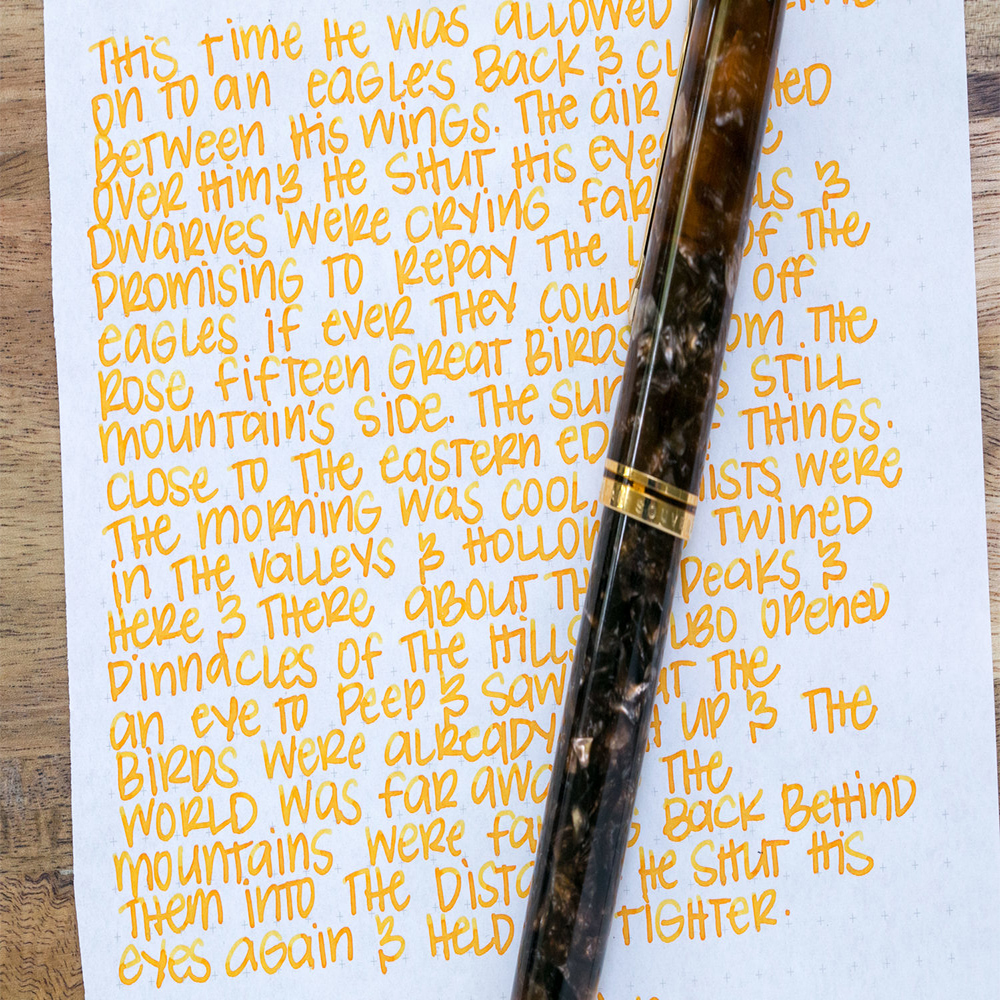 THIS TIME HE WAS ALLOWED
ON TO AN EAGLE'S BACK &
BETWEEN HIS WINGS. THE AIR
OVER HIM & HE SHUT HIS EYES
DWARVES WERE CRYING &
PROMISING TO REPAY THE OF THE
EAGLES IF EVER THEY OFF
ROSE FIFTEEN GREAT BIRDS THE
MOUNTAIN'S SIDE. THE SUN STILL
CLOSE TO THE EASTERN THINGS.
THE MORNING WAS COOL, MISTS WERE
IN THE VALLEYS & TWINED
HERE & THERE ABOUT PEAKS &
PINNACLES OF THE HILLS OPENED
AN EYE TO PEEP & SAW THE
BIRDS WERE ALREADY UP & THE
WORLD WAS FAR THE
MOUNTAINS WERE BACK BEHIND
THEM INTO THE HE SHUT HIS
EYES AGAIN & HELD TIGHTER.